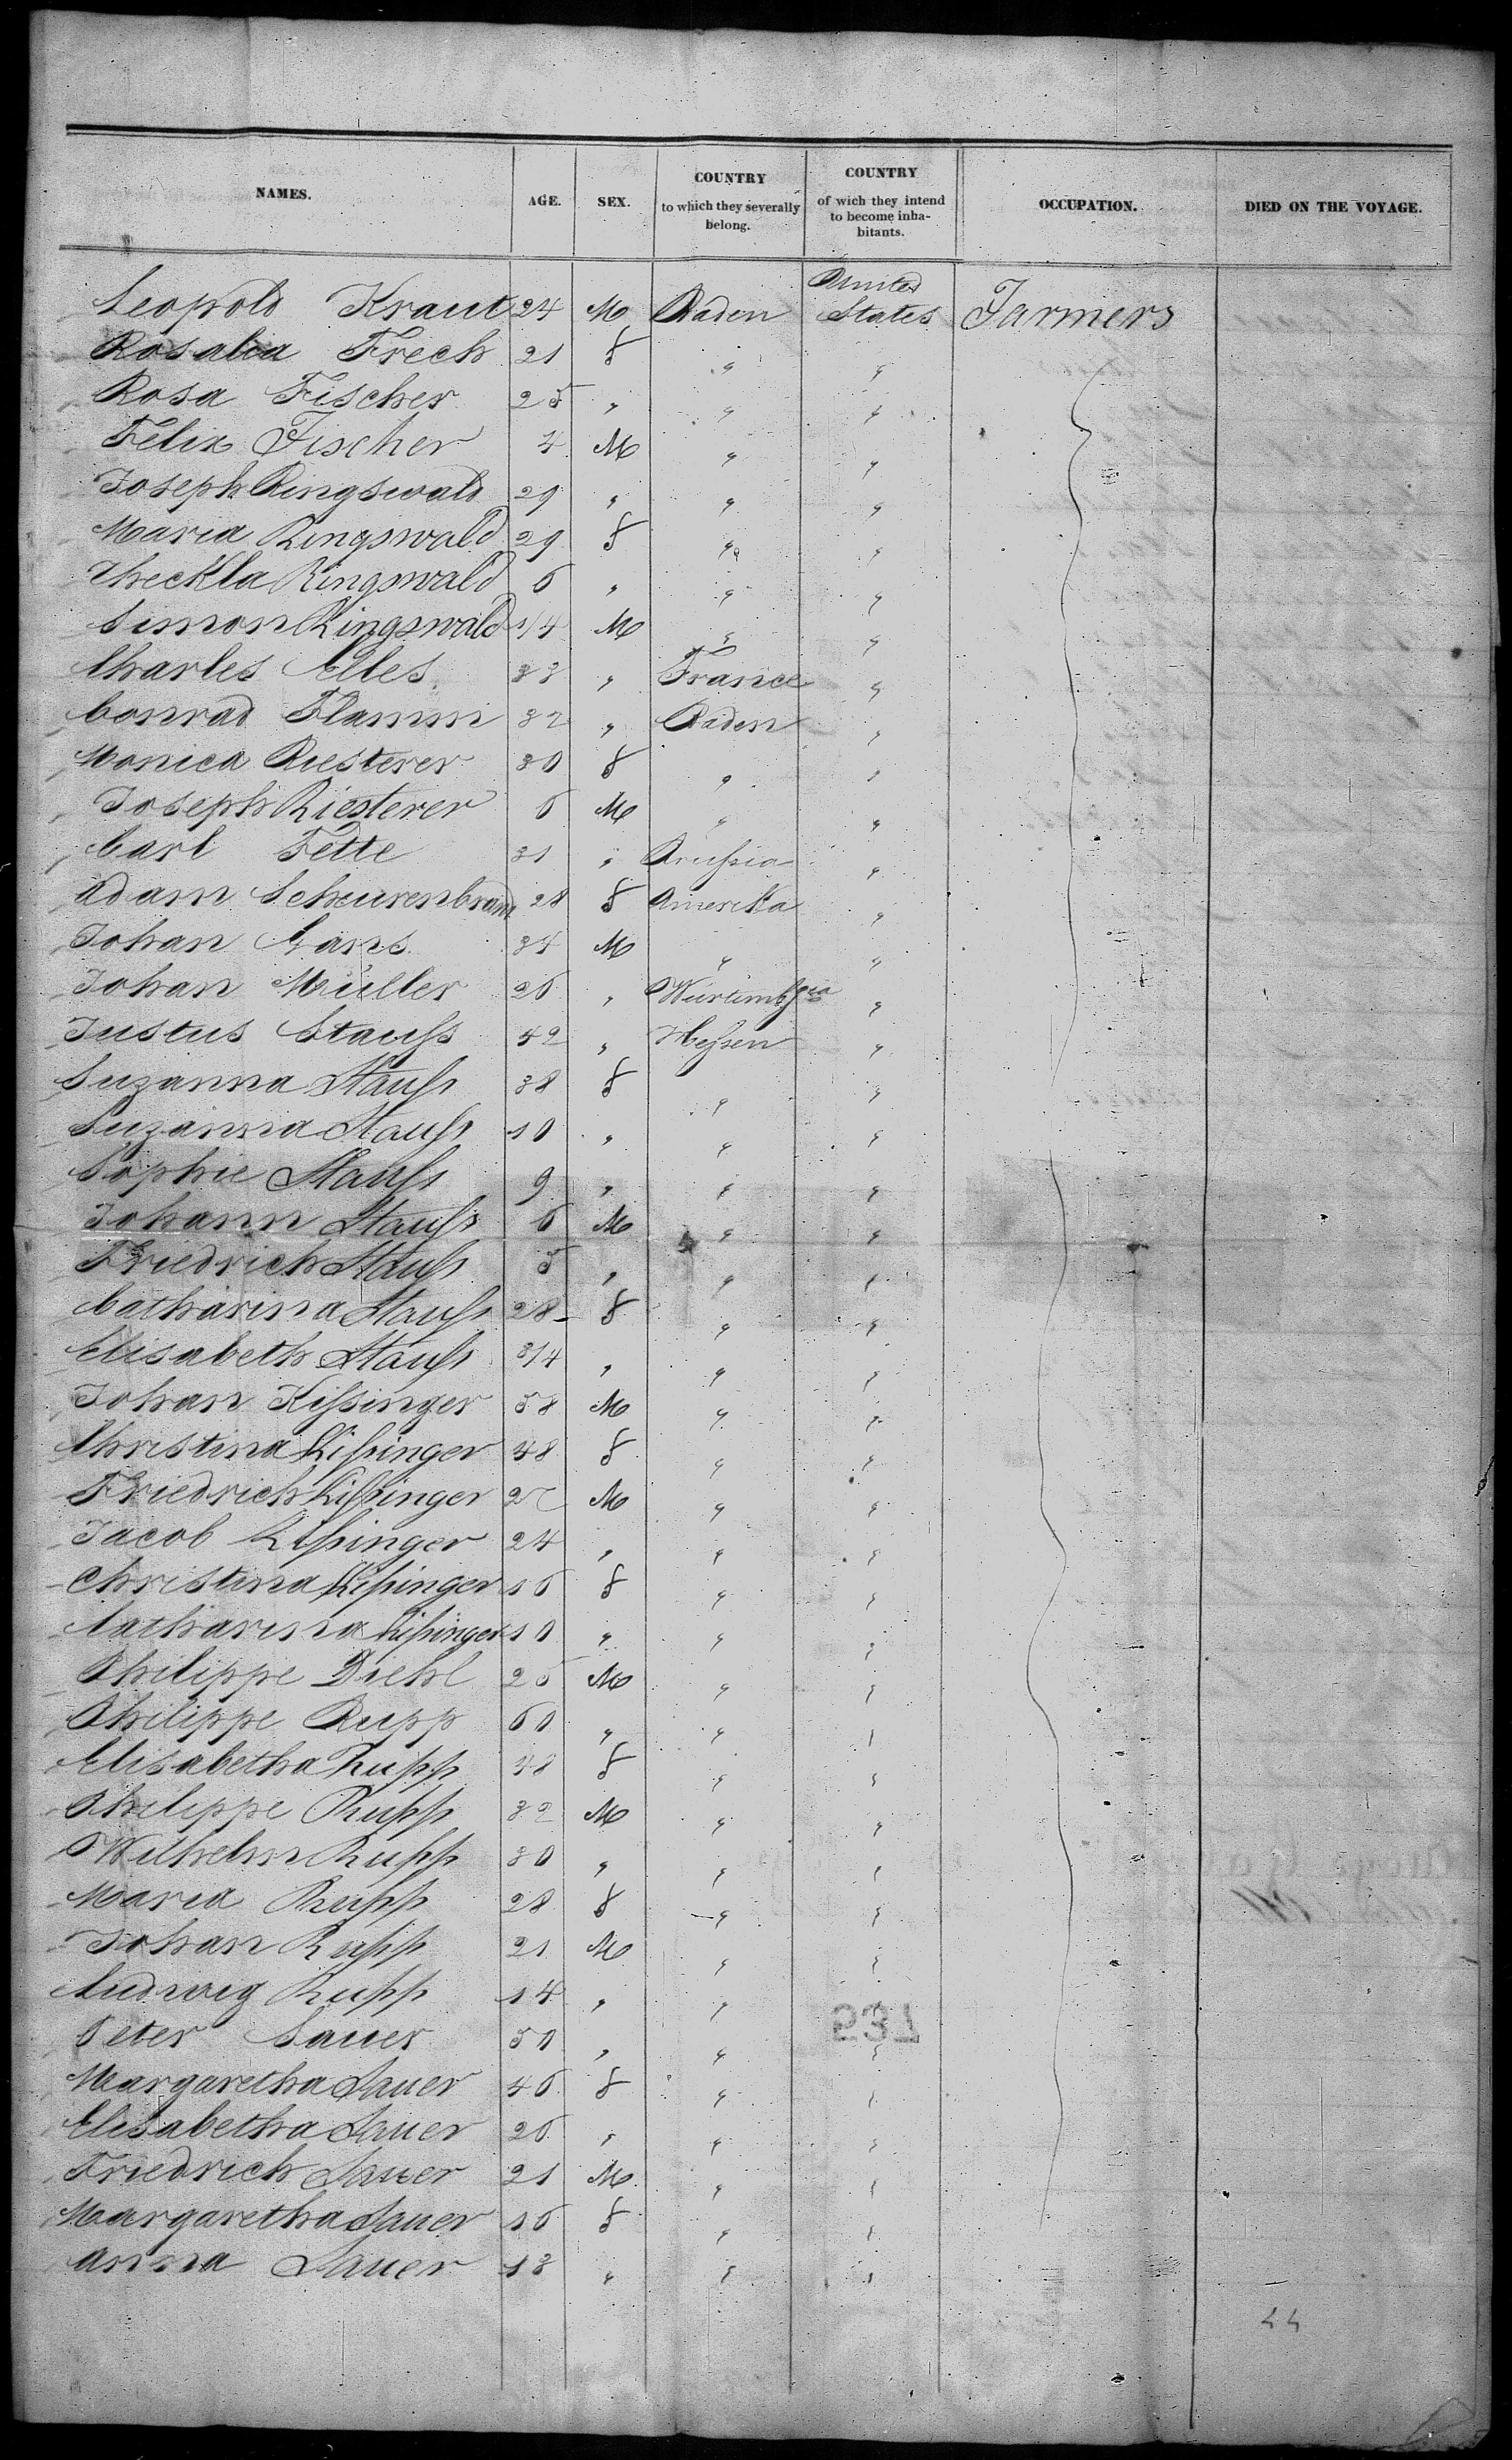 NAMES. AGE. SEX. COUNTRY to which they severally belong. COUNTRY of wich they intend to become inha-bitants. OCCUPATION. DIED ON THE VOYAGE.
Leopold Kraut 24 M Baden United States Farmers
Rosalia Frech 21 f " "
Rosa Fischer 25 " " "
Felix Fischer 4 M " "
Joseph Ringswald 29 " " "
Maria Ringswald 29 f " "
Theckla Ringswald 6 " " "
Simon Ringswald 1/4 M " "
Charles Elles 33 " France "
Conrad Flamm 32 " Baden "
Monica Riesterer 30 f " "
Joseph Riesterer 6 M " "
Carl Fette 31 " Prußia "
Adam Scheurenbrand 28 f Amerika "
Johan Gans 34 M " "
Johan Müller 26 " "
Justus Stauß 42 " Heßen "
Suzanna Stauß 38 f " "
Suzanna Stauß 10 " " "
Sophie Stauß 9 " " "
Johann Stauß 6 M " "
Friedrich Stauß 5 " " "
Catharina Stauß 28 f " "
Elisabeth Stauß 3/4 " " "
Johan Kißinger 58 M " "
Christina Kißinger 48 f " "
Friedrich Kißinger M " "
Jacob Kißinger 24 " " "
Christina Kißinger 16 f " "
Catharina Kißinger 10 " " "
Philippe Diehl 25 M " "
Philippe Rupp 60 " " "
Elisabetha Rupp 48 f " "
Philippe Rupp 32 M " "
Wilhelm Rupp 30 " " "
Maria Rupp 28 f " "
Johan Rupp 21 M " "
Ludwig Rupp 14 " " "
537
Peter Sauer 50 " " "
Margaretha Sauer 46 f " "
Elisabetha Sauer 26 " " "
Friedrich Sauer 21 M " "
Margaretha Sauer 16 f " "
Anna Sauer 13 " " "
44